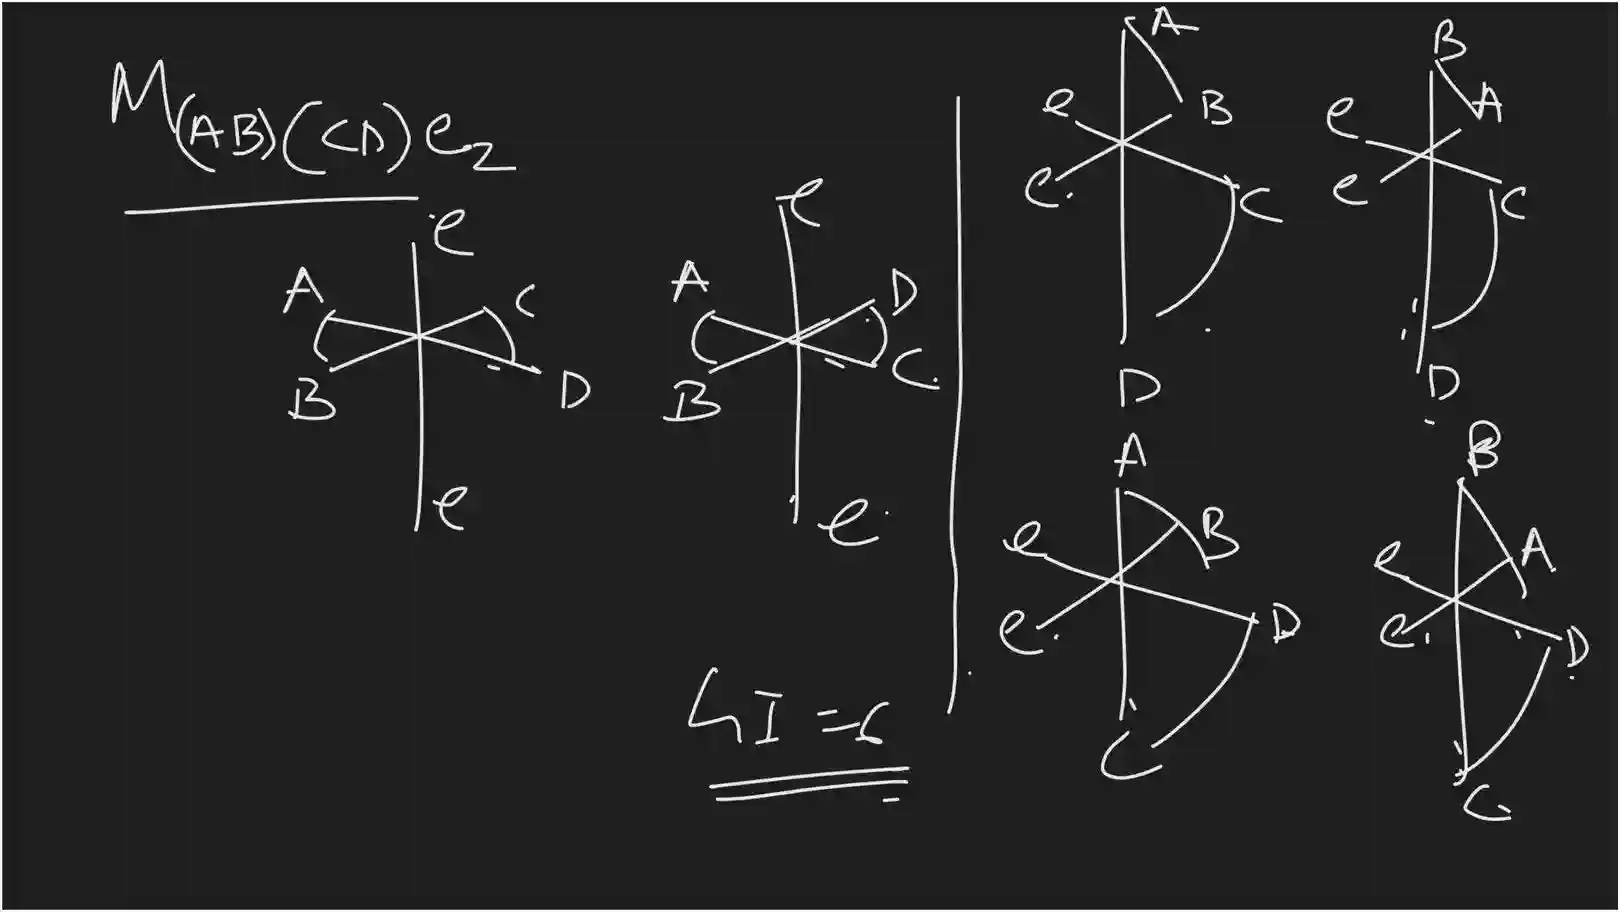 M(AB)(CD)e2
e
A C
B D
e
e
A D
B C
e
GI = 6
A
e B
e C
D
B
e A
e C
D
A
e B
e D
C
B
e A
e D
C